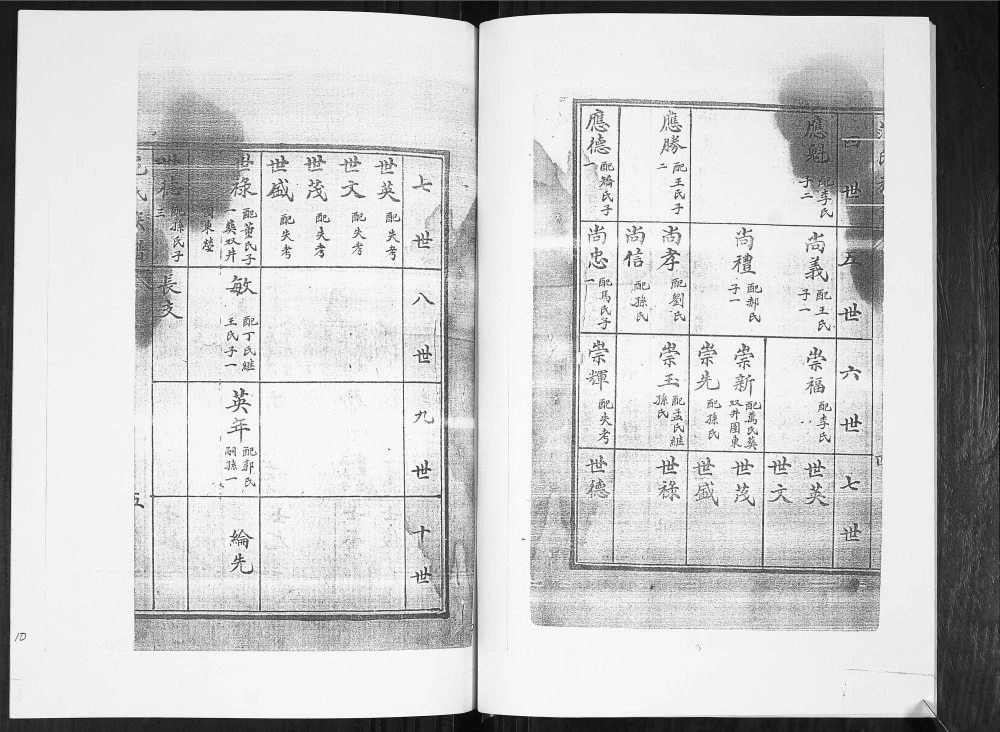 四世
五世
六世
七世
應魁 配李氏
子二
尚義 配王氏
子一
崇福 配李氏
世英
世文
尚禮 配郝氏
子一
崇新 配萬氏葬
双井園東
世茂
崇先 配孫氏
世盛
應勝 配王氏子
二
尚孝 配劉氏
崇玉 配孟氏繼
孫氏
世祿
尚信 配孫氏
應德 配矯氏子
一
尚忠 配馬氏子
一
崇輝 配失考
世德
四
七世
八世
九世
十世
世英 配失考
世文 配失考
世茂 配失考
世盛 配失考
世祿 配董氏子
一葬双井
園東塋
敏 配丁氏繼
王氏子一
英年 配郭氏
嗣孫一
綸先
世德 配孫氏子
三
長支
五
10